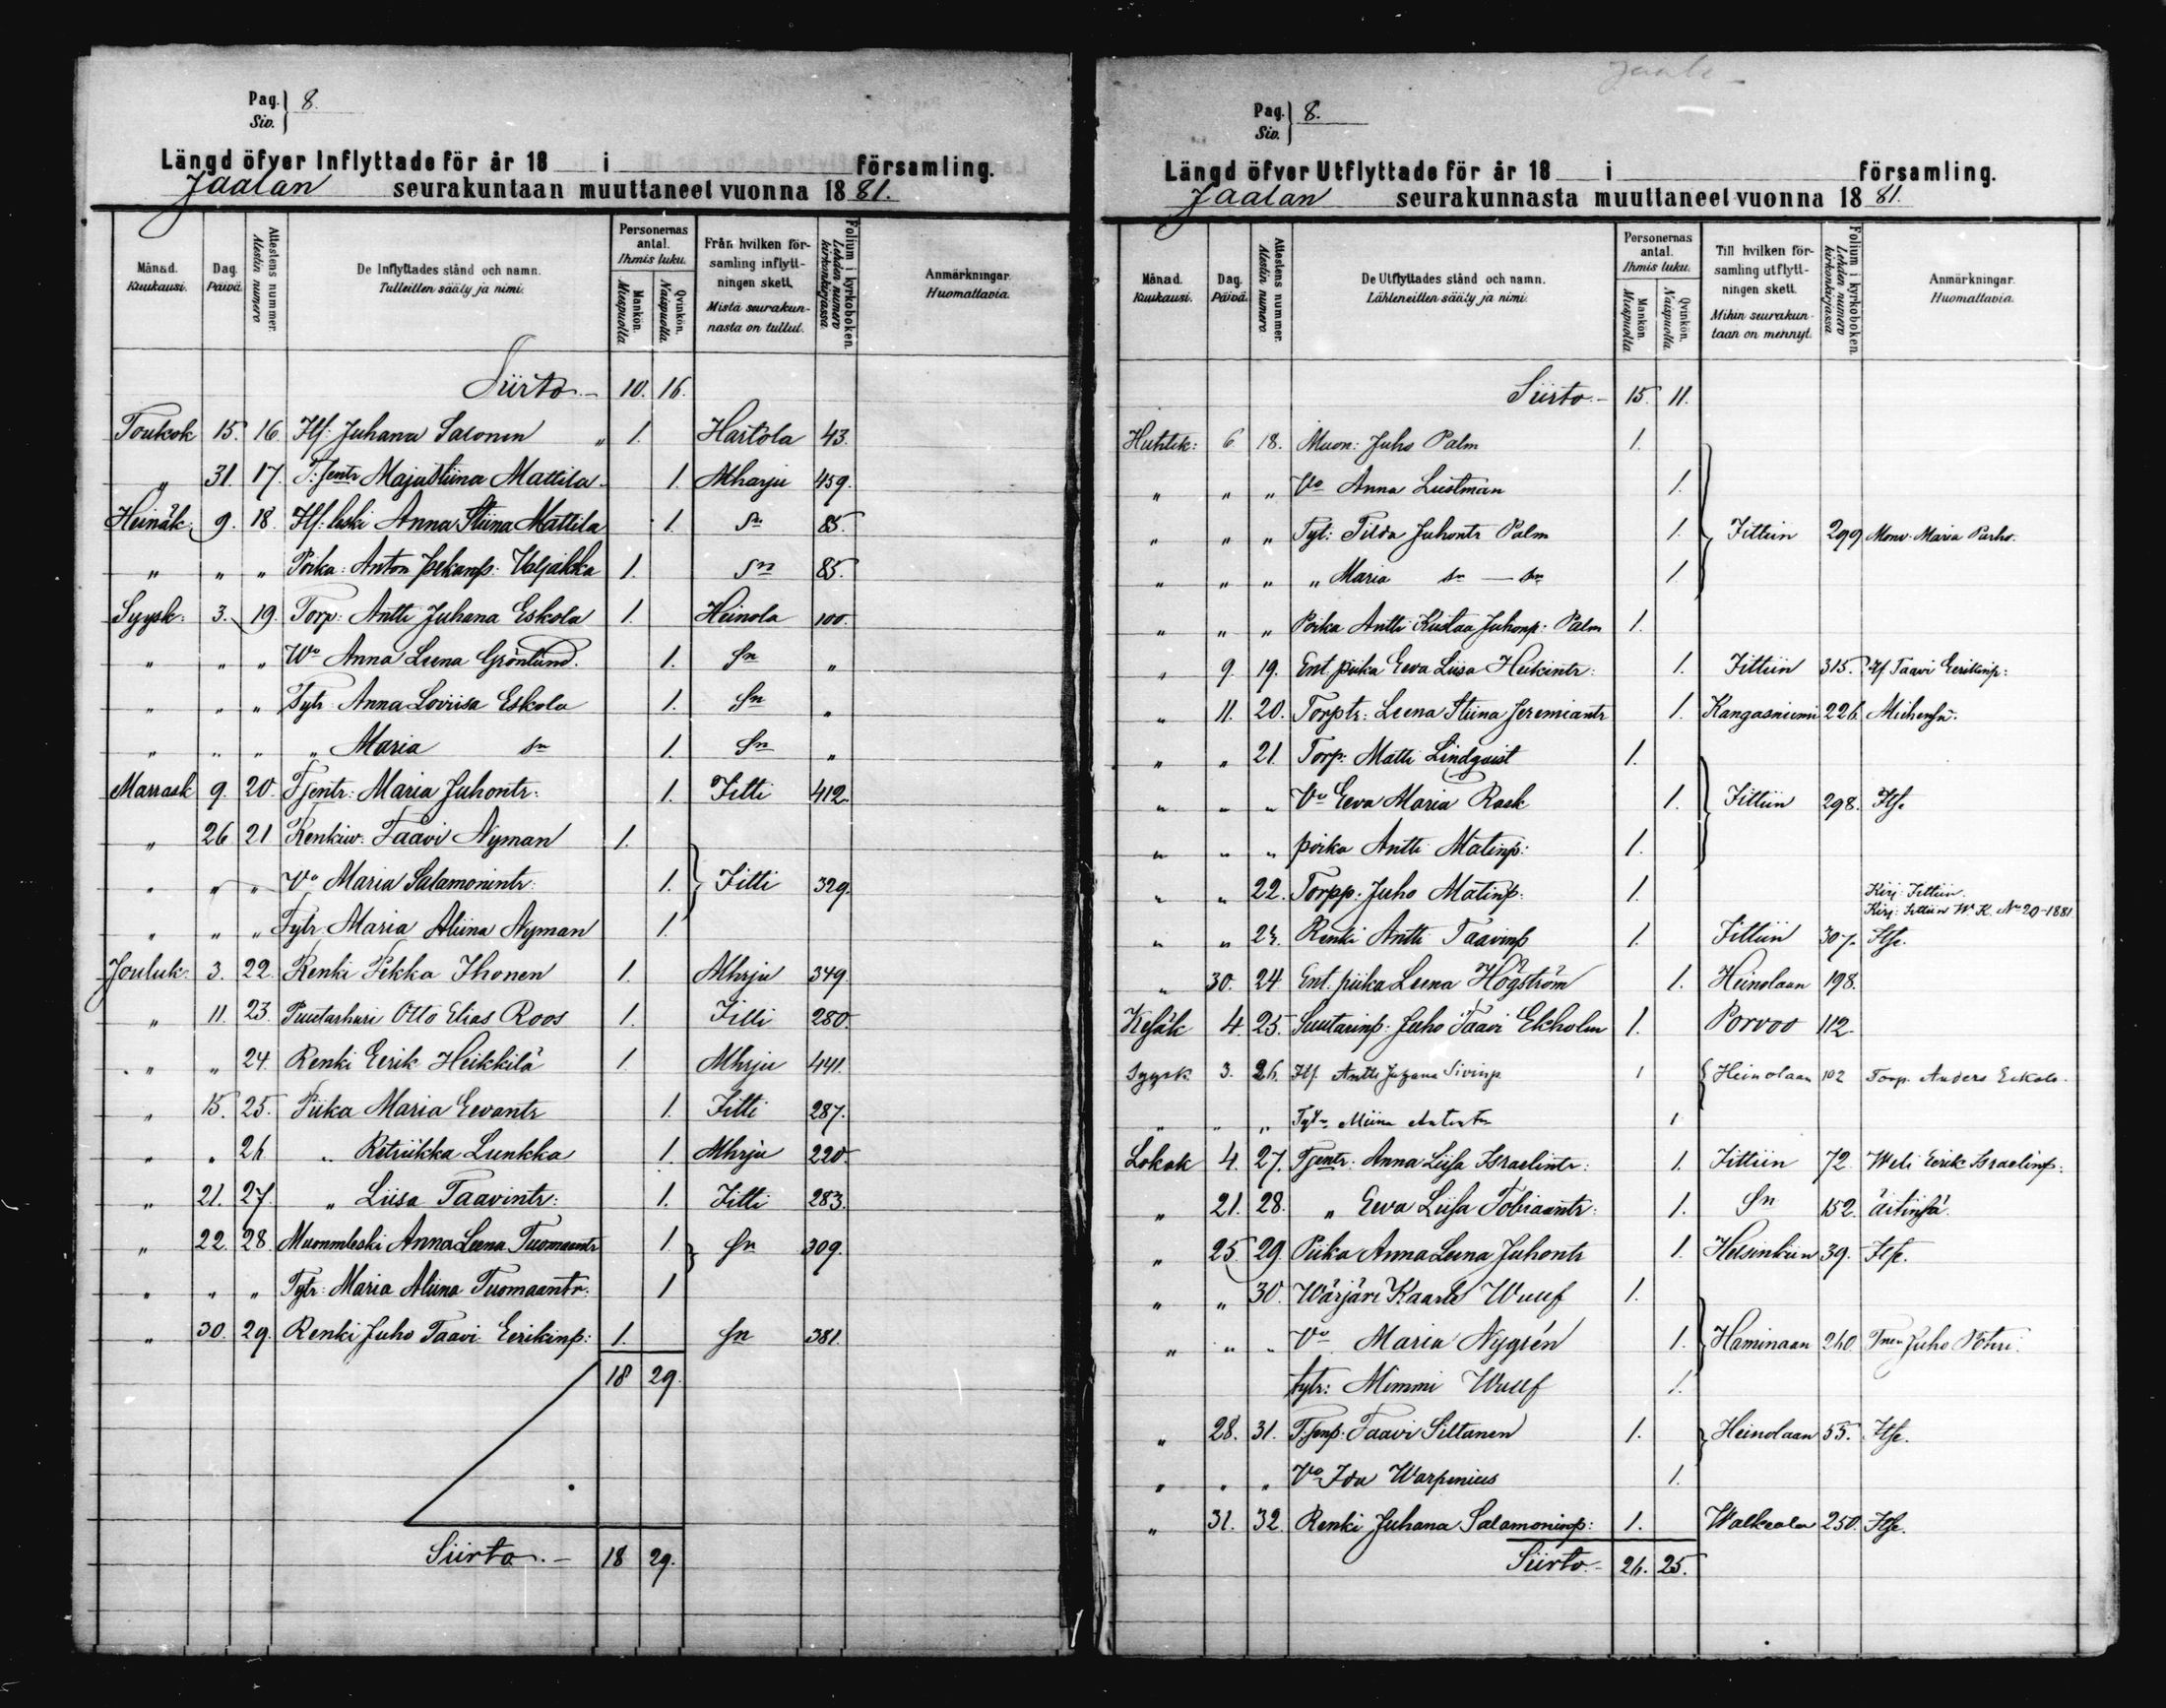 Pag. Siv. 8.
Längd öfver Inflyttade för år 18 i församling.
Jaalan seurakuntaan muuttaneet vuonna 1881.
Månad. Kuukausi. Dag. Päivä. Attestens nummer. Atestin numero De Inflyttades stånd och namn. Tulleitten sääty ja nimi. Personernas antal. Ihmis luku. Mankön. Miespuolia Qvinkön. Naispuolia. Från hvilken församling inflyttningen skett. Mistä seurakunnasta on tullut. Folium i kyrkoboken. Lehden numero kirkonkirjassa. Anmärkningar. Huomattavia.
Siirto - 10. 16.
Toukok 15. 16. Itf: Juhana Salonen " 1. Hartola 43.
" 31. 17. T:jentr Maja Stiina Mattila 1. Mharju 459.
Heinäk: 9. 18. Itf: leski Anna Stiina Mattila 1. Sn 85.
" " " Poika: Anton Pekanp: Valjakka 1. Sn 85.
Syysk: 3. 19. Torp: Antti Juhana Eskola 1. Heinola 100.
" " " Wo Anna Leena Grönlund. 1. Sn "
" " " Tytr Anna Loviisa Eskola 1. Sn "
" " " " Maria sn 1. Sn "
Marrask 9. 20. Tjentr: Maria Juhontr: 1. Iitti 412.
" 26 21 Renkiw: Taavi Nyman 1.
" " " Vo Maria Salamonintr: 1. Iitti 329.
" " " Tytr: Maria Aliina Nyman 1.
Jouluk: 3. 22. Renki Pekka Ihonen 1. Mhrju 349.
" 11. 23. Puutarhuri Otto Elias Roos 1. Iitti 280.
" " 24. Renki Eerik Heikkilä 1. Mhrju 441.
" 15. 25. Piika Maria Eevantr 1. Iitti 287.
" " 26. " Retriikka Lunkka 1. Mhrju 220.
" 21. 27. " Liisa Taavintr: 1. Iitti 283.
" 22. 28. Muonmleski Anna Leena Tuomaantr 1. Sn 309.
" " " Tytr: Maria Aliina Tuomaantr. 1
" 30. 29. Renki Juho Taavi Eerikinp: 1. Sn 381.
18 29.
Siirto. - 18 29.
Jaala
Pag. Siv. 8.
Längd öfver Utflyttade för år 18 i församling.
Jaalan seurakunnasta muuttaneet vuonna 1881.
Månad. Kuukausi. Dag. Päivä. Attestens nummer. Atestin numero De Utflyttades stånd och namn. Lähteneitten sääty ja nimi. Personernas antal. Ihmis luku. Mankön. Miespuolia Qvinkön. Naispuolia. Till hvilken församling utflyttningen skett. Mihin seurakuntaan on mennyt. Folium i kyrkoboken. Lehden numero kirkonkirjassa Anmärkningar. Huomattavia.
Siirto - 15. 11.
Huhtik: 6. 18. Muon: Juho Palm 1.
" " " Vo Anna Lustman 1.
" " " Tyt: Tilda Juhontr Palm 1. Iittiin 299 Monv. Maria Parho.
" " " " Maria sn — sn 1
" " " Poika Antti Kustaa Juhonp: Palm 1.
" 9. 19. Ent. piika Eeva Liisa Heikintr: 1. Iittiin 315. Itf Taavi Eerikinp:
" 11. 20. Torptr: Leena Stiina Jeremiantr 1. Kangasniemi 226. Miehensä.
" " 21. Torp: Matti Lindqvist 1.
" " " Vo Eeva Maria Rask 1. Iittiin 298. Itse
" " " poika Antti Matinp: 1.
" " 22. Torpp: Juho Matinp: 1. Kirj: Iittiin.
Kirj: Iittiin W. K. No 20-1881.
" " 23. Renki Antti Taavinp 1. Iittiin 307. Itse.
" 30. 24. Ent. piika Leena Högström 1. Heinolaan 198.
Kesäk 4. 25. Suutarinp: Juho Taavi Ekholm 1. Porvoo 112.
Syysk 3. 26. Itf. Antti Juhana Sivinp 1 Heinolaan 102 Torp. Anders Eskola.
" " " Tytr. Miina Antintr 1
Lokak 4. 27. Tjentr: Anna Liisa Israelintr: 1. Iittiin 72 Weli Eerik Israelinp:
" 21. 28. " Eeva Liisa Tobiaantr: 1. Sn 152. äitinsä.
" 25. 29. Piika Anna Leena Juhontr 1. Helsinkiin 39. Itse.
" " 30. Wärjäri Kaarle Wuuf 1.
" " " Vo Maria Nygrén 1. Haminaan 260. Juho
tytr: Mimmi Wuuf 1.
" 28. 31. T:jenp: Taavi Siltanen 1. Heinolaan 55. Itse.
" " " Vo Ida Warpenius 1.
" 31. 32. Renki Juhana Salamoninp: 1. Walkeala 250. Itse.
Siirto - 26. 25.